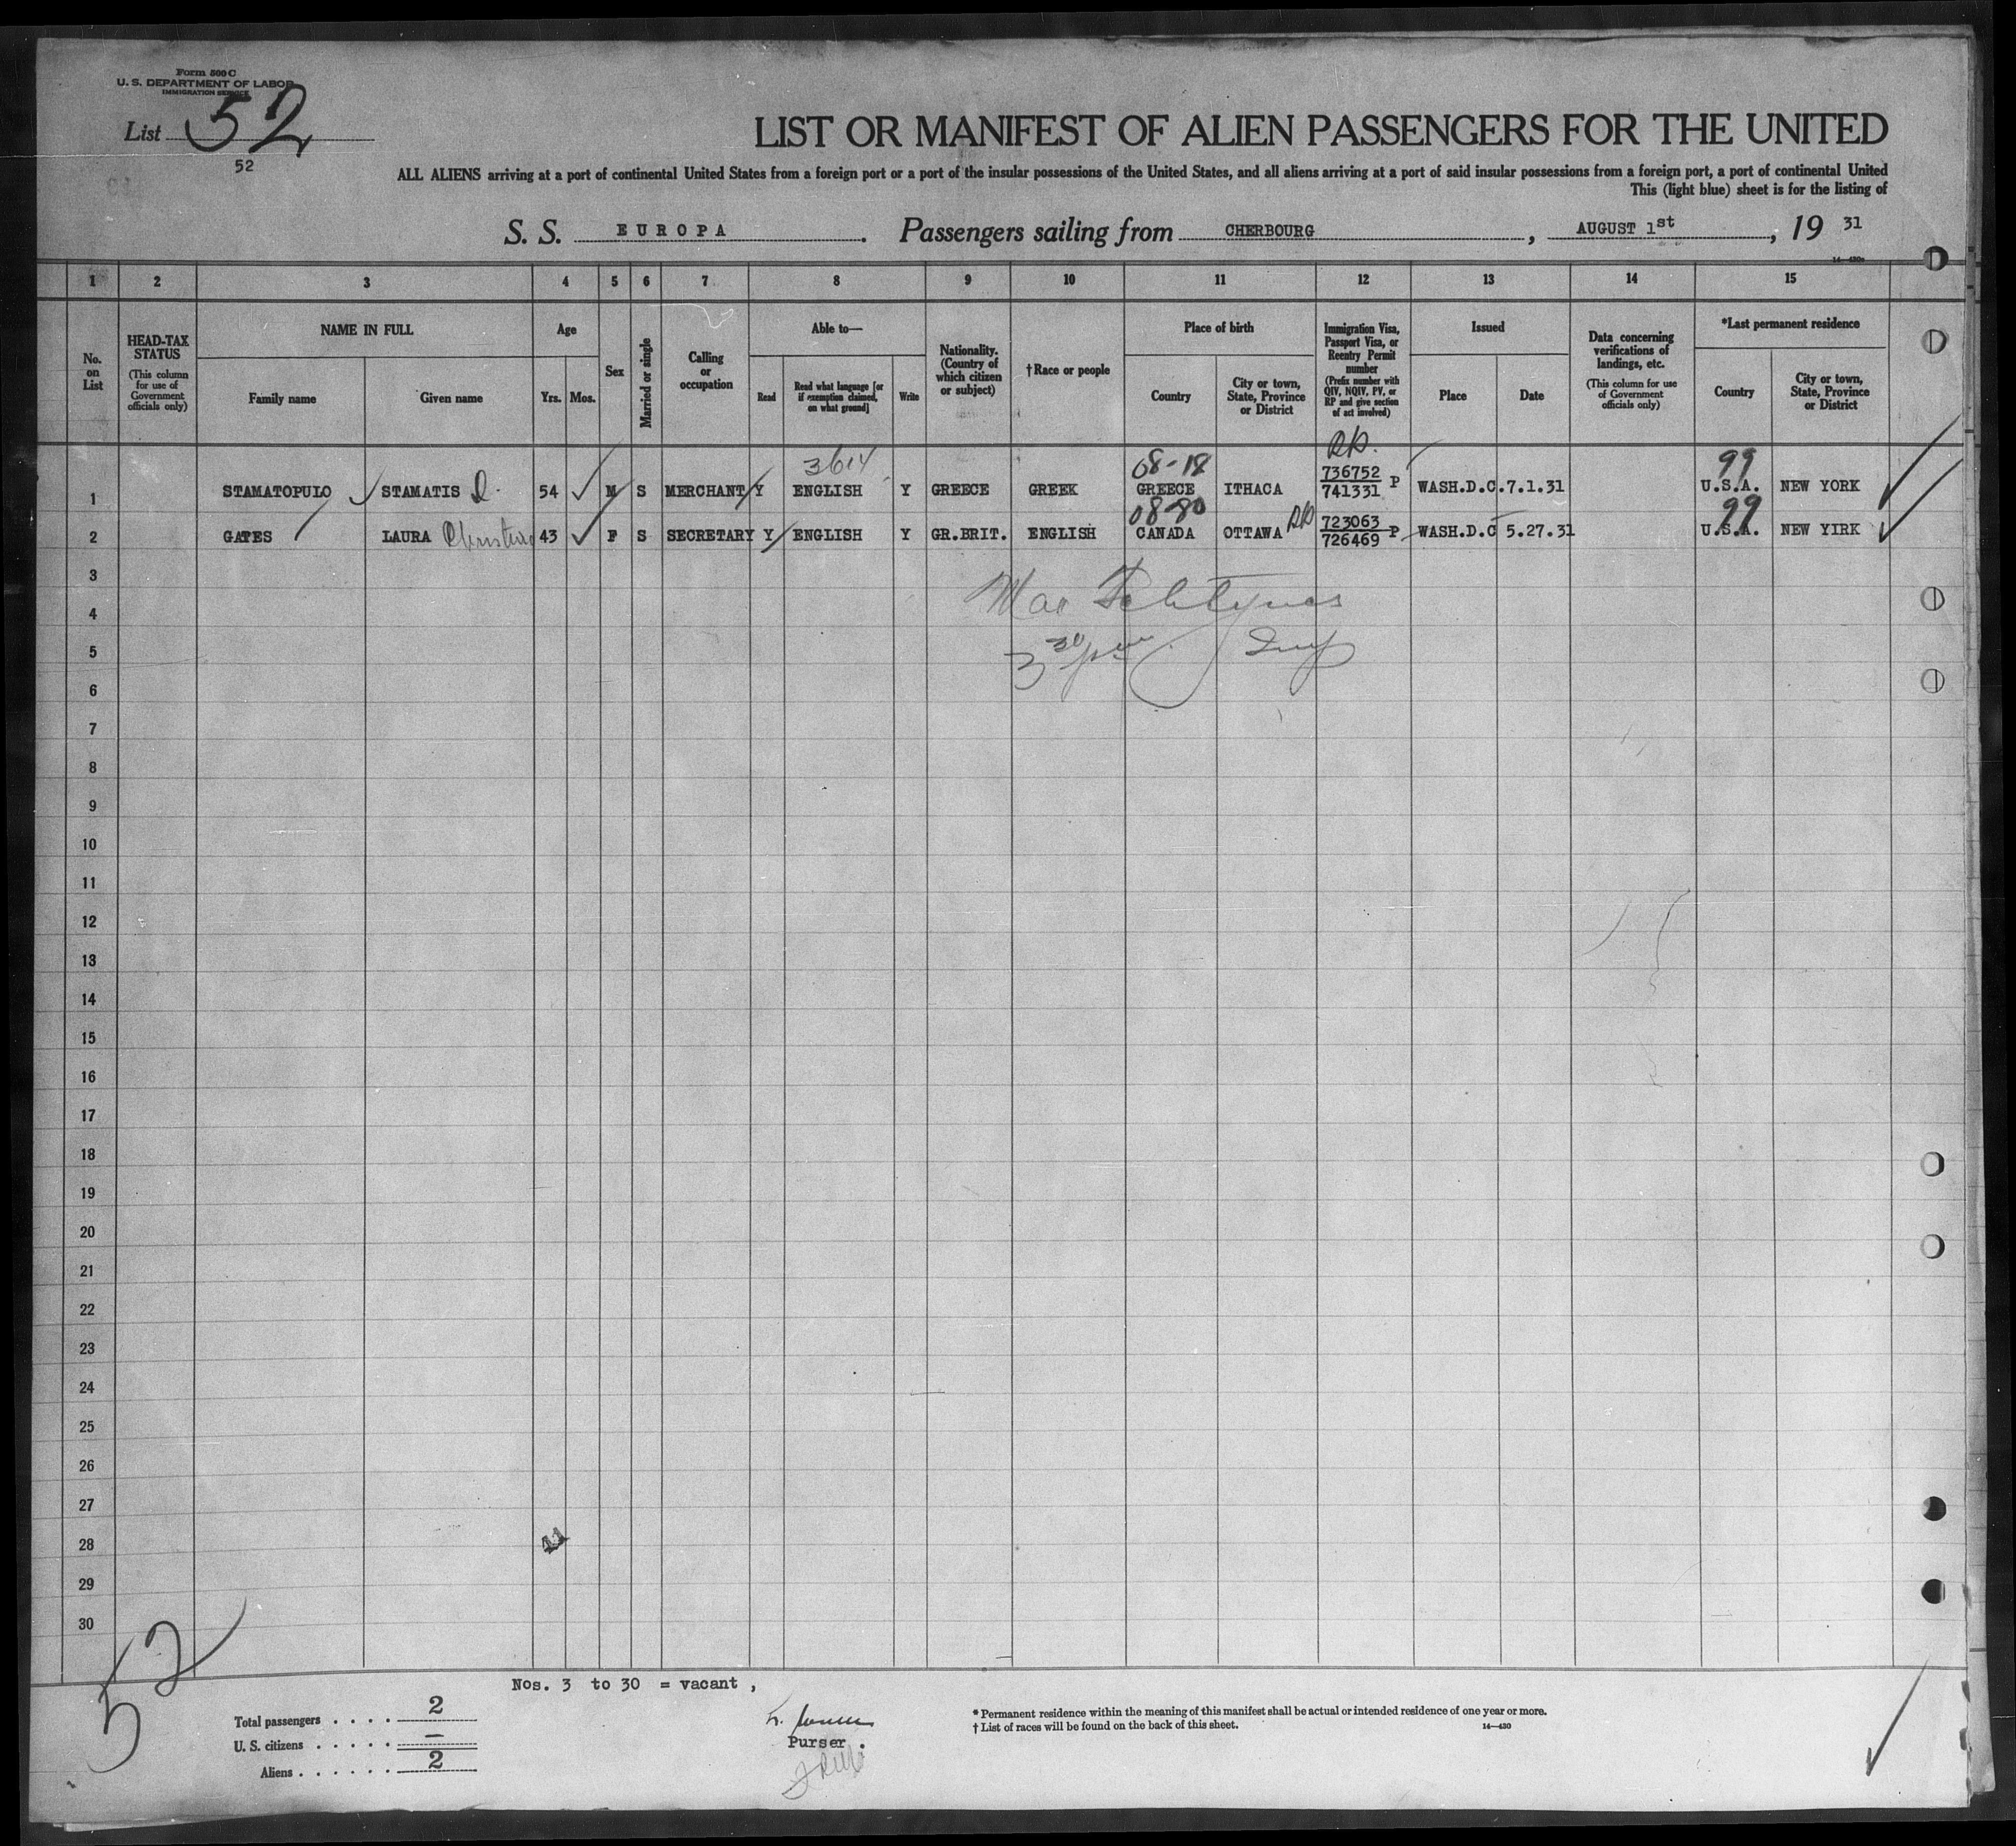 Form 500 C
U. S. DEPARTMENT OF LABOR
IMMIGRATION SERVICE
List 52
52
LIST OR MANIFEST OF ALIEN PASSENGERS FOR THE UNITED
ALL ALIENS arriving at a port of continental United States from a foreign port or a port of the insular possessions of the United States, and all aliens arriving at a port of said insular possessions from a foreign port, a port of continental United
This (light blue) sheet is for the listing of
S. S. EUROPA. Passengers sailing from CHERBOURG, AUGUST 1st, 19 31
1 2 3 4 5 6 7 8 9 10 11 12 13 14 15
No. on List
HEAD-TAX STATUS (This column for use of Government officials only)
NAME IN FULL
Family name
Given name
Age
Yrs.
Mos.
Sex
Married or single
Calling or occupation
Able to—
Read
Read what language [or if exemption claimed, on what ground]
Write
Nationality. (Country of which citizen or subject)
†Race or people
Place of birth
Country
City or town, State, Province or District
Immigration Visa, Passport Visa, or Reentry Permit number (Prefix number with QIV, NQIV, PV, or RP and give section of act involved)
Issued
Place
Date
Data concerning verifications of landings, etc. (This column for use of Government officials only)
*Last permanent residence
Country
City or town, State, Province or District
3614 08-18 99
1 STAMATOPULO STAMATIS D. 54 M S MERCHANT Y ENGLISH Y GREECE GREEK GREECE ITHACA 736752 741331 P WASH.D.C. 7.1.31 U.S.A. NEW YORK
08-80 99
2 GATES LAURA 43 F S SECRETARY Y ENGLISH Y GR.BRIT. ENGLISH CANADA OTTAWA 723063 726469 P WASH.D.C 5.27.31 U.S.A. NEW YIRK
3
4
5 3 30 pm Insp
6
7
8
9
10
11
12
13
14
15
16
17
18
19
20
21
22
23
24
25
26
27
28
29
30
52
Nos. 3 to 30 = vacant ,
Total passengers . . . . 2
U. S. citizens . . . . . —
Aliens . . . . . . 2
Purser .
* Permanent residence within the meaning of this manifest shall be actual or intended residence of one year or more.
† List of races will be found on the back of this sheet.
14—430